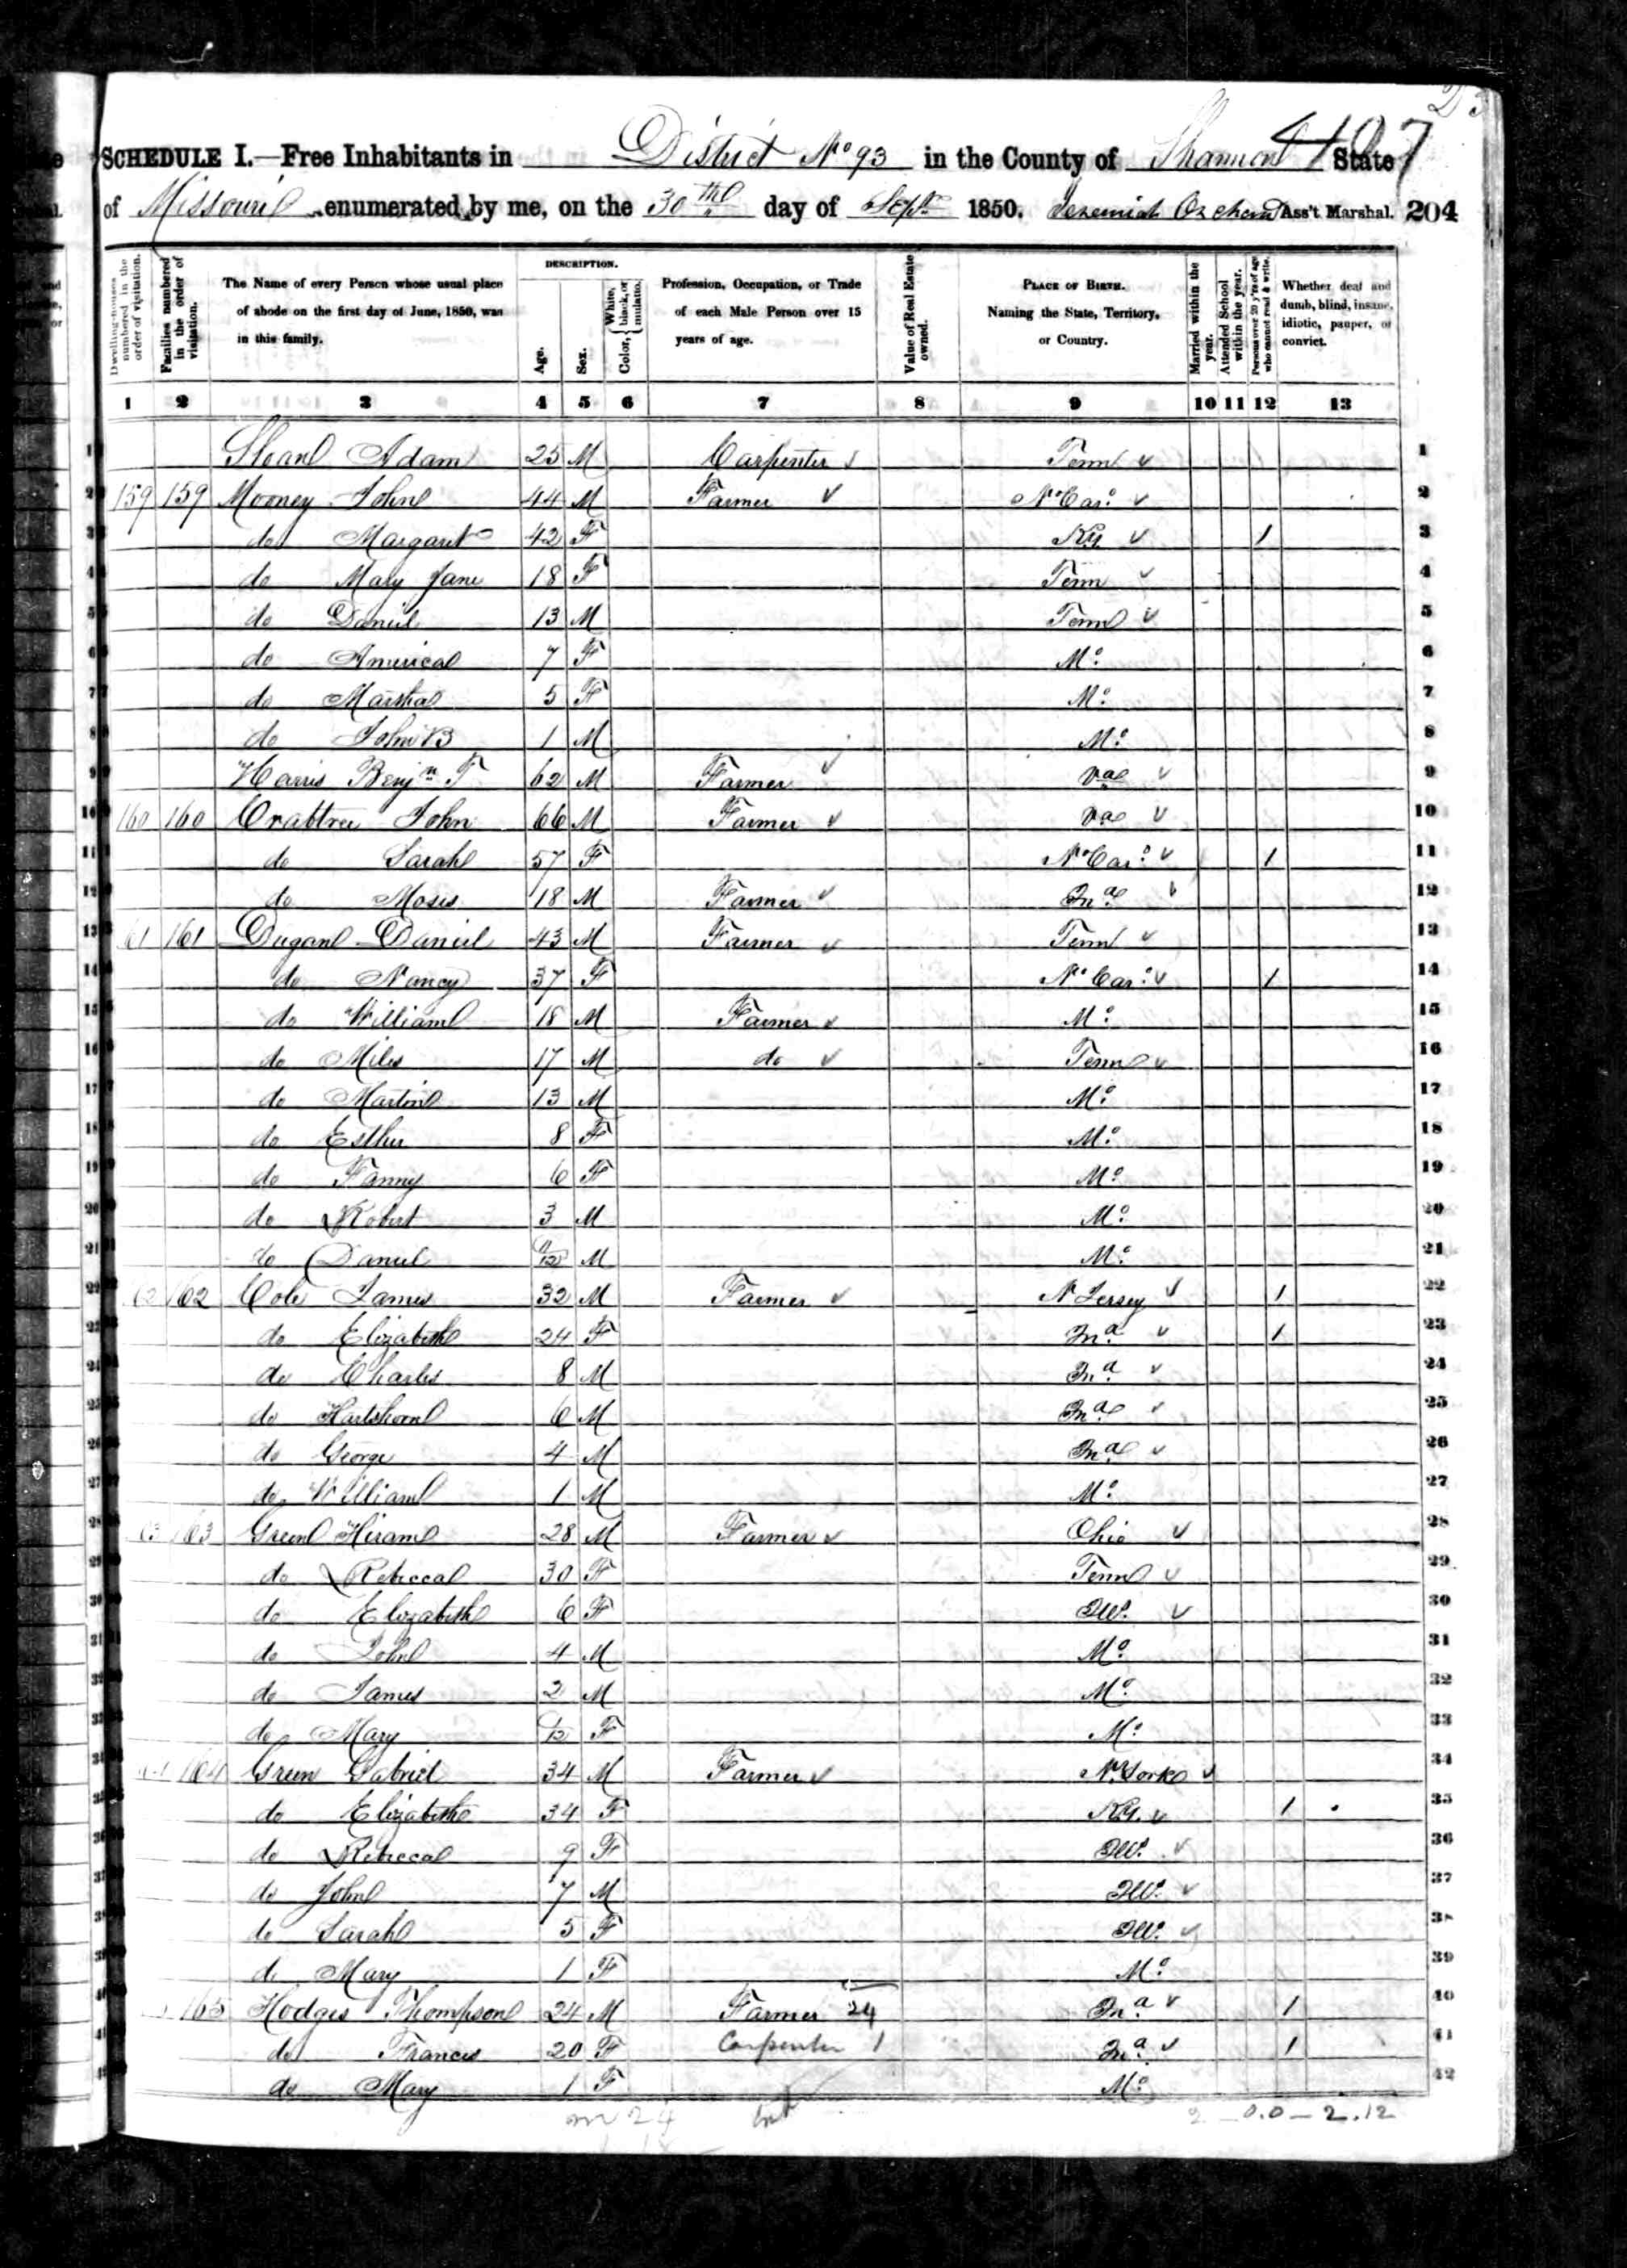 23
4107
SCHEDULE I.—Free Inhabitants in District No 93 in the County of Shannon State
of Missouri enumerated by me, on the 30th day of Sept 1850. Jeremiah Ass't Marshal. 204
Dwelling-houses numbered in the order of visitation.
Families numbered in the order of visitation.
The Name of every Person whose usual place of abode on the first day of June, 1850, was in this family.
DESCRIPTION.
Age.
Sex.
Color, { White, black, or mulatto.
Profession, Occupation, or Trade of each Male Person over 15 years of age.
Value of Real Estate owned.
PLACE OF BIRTH. Naming the State, Territory, or Country.
Married within the year.
Attended School within the year.
Persons over 20 y'rs of age who cannot read & write.
Whether deaf and dumb, blind, insane, idiotic, pauper, or convict.
1 2 3 4 5 6 7 8 9 10 11 12 13
1 Sloan Adam 25 M Carpenter Tenn 1
2 159 159 Mooney John 44 M Farmer No Caro 2
3 do Margaret 42 F Ky 1 3
4 do Mary Jane 18 F Tenn 4
5 do Daniel 13 M Tenn 5
6 do America 7 F Mo 6
7 do Martha 5 F Mo 7
8 do John B 1 M Mo 8
9 Harris Benjn F 62 M Farmer Va 9
10 160 160 Crabtree John 66 M Farmer Va 10
11 do Sarah 57 F No Caro 1 11
12 do Moses 18 M Farmer Ina 12
13 61 161 Dugan Daniel 43 M Farmer Tenn 13
14 do Nancy 37 F No Car 1 14
15 do William 18 M Farmer Mo 15
16 do Miles 17 M do Tenn 16
17 do Martin 13 M Mo 17
18 do Esther 8 F Mo 18
19 do Fanny 6 F Mo 19
20 do Robert 3 M Mo 20
21 do Daniel M Mo 21
22 62 162 Cole James 32 M Farmer N Jersey 1 22
23 do Elizabeth 24 F Ina 1 23
24 do Charles 8 M Ina 24
25 do Hartshorn 6 M Ina 25
26 do George 4 M Ina 26
27 do William 1 M Mo 27
28 63 163 Green Hiram 28 M Farmer Ohio 28
29 do Rebecca 30 F Tenn 29
30 do Elizabeth 6 F Ills 30
31 do John 4 M Mo 31
32 do James 2 M Mo 32
33 do Mary F Mo 33
34 164 Green Gabriel 34 M Farmer N. York 34
35 do Elizabeth 34 F Ky. 1 35
36 do Rebecca 9 F Ills 36
37 do John 7 M Ills 37
38 do Sarah 5 F Ills 38
39 do Mary 1 F Mo 39
40 165 Hodges Thompson 24 M Farmer 24 Ina 1 40
41 do Frances 20 F Carpenter 1 Ina 1 41
42 do Mary 1 F Mo 42
m 24 2 – 0.0 – 2.12